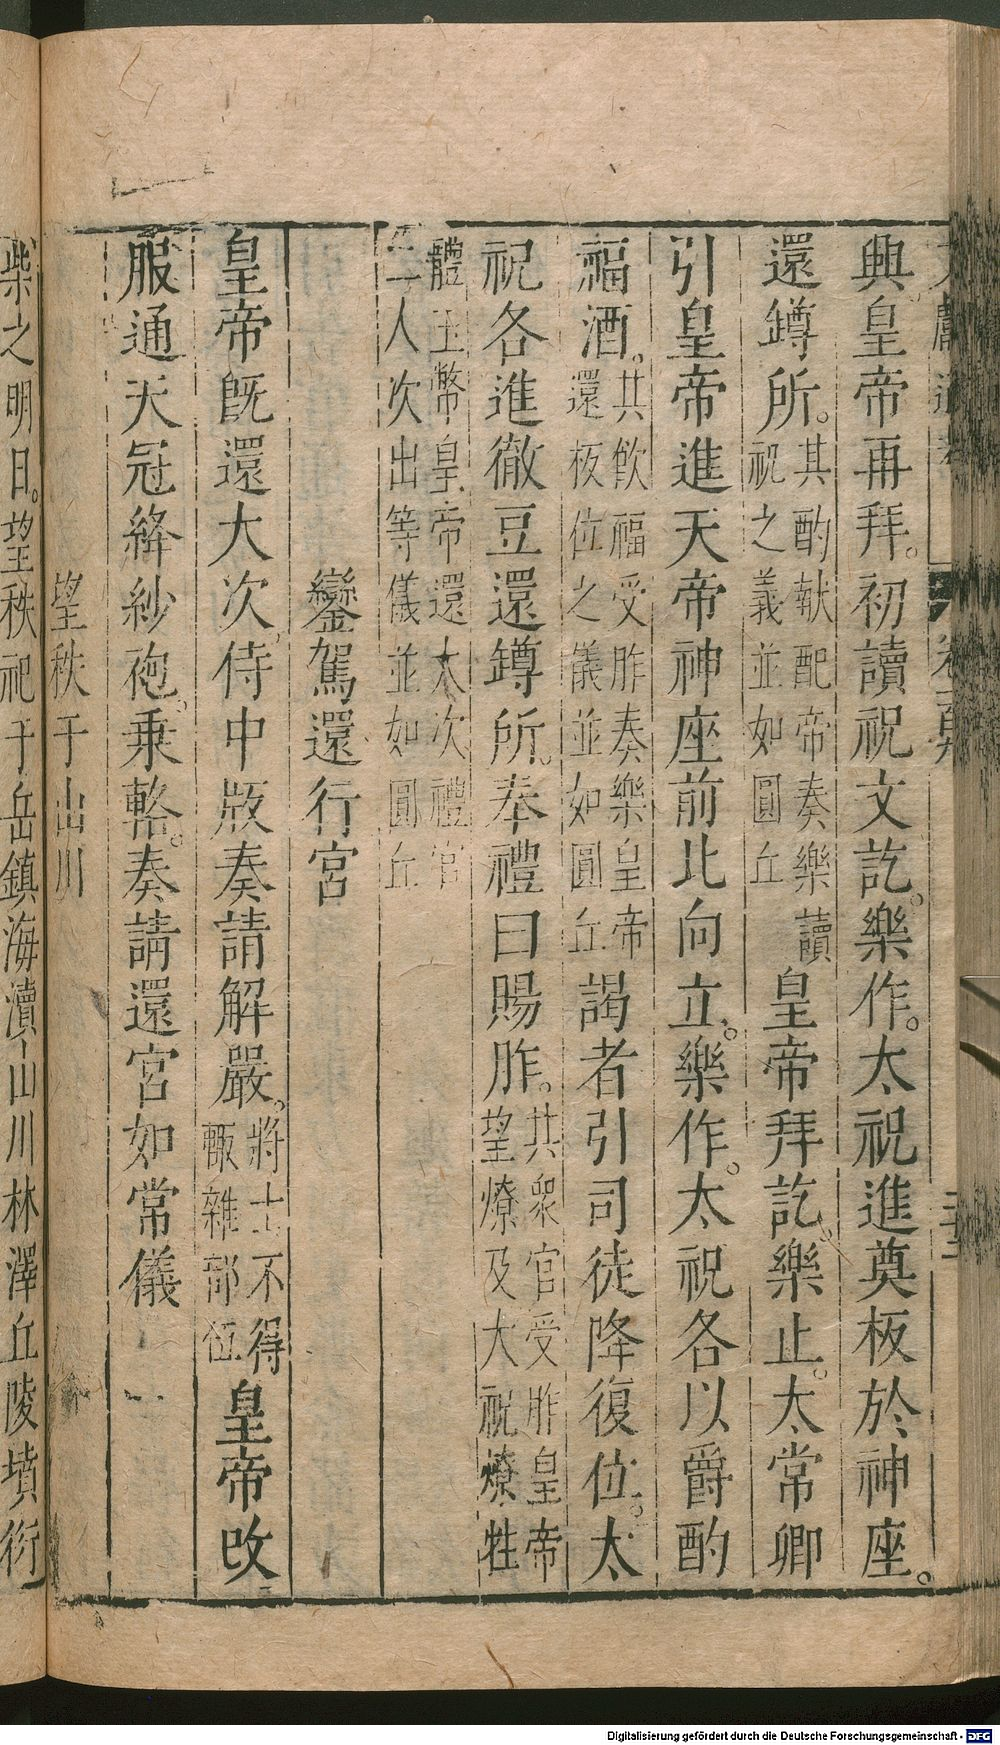 興皇帝再拜。初讀祝文訖。樂作。太祝進奠板於神座。
還罇所。其酌献配帝奏樂讀祝之義並如圓丘皇帝拜訖。樂止。太常卿
引皇帝進天帝神座前北向立。樂作。太祝各以爵酌
福酒。其飲福受胙奏樂皇帝還板位之儀並如圓丘謁者引司徒降復位。太
祝各進徹豆還罇所。奉禮曰賜胙。共衆官受胙皇帝望燎及大祝燎牲
體玉幣皇帝還大次禮官二人次出等儀並如圓丘
鑾駕還行宮
皇帝既還大次侍中版奏請解嚴。將士不得輙離部伍皇帝改
服通天冠絳紗袍。乗輅。奏請還宮如常儀
望秩于山川
柴之明日。望秩祀于岳鎮海瀆山川林澤丘陵墳衍
Digitalisierung gefördert durch die Deutsche Forschungsgemeinschaft - DFG